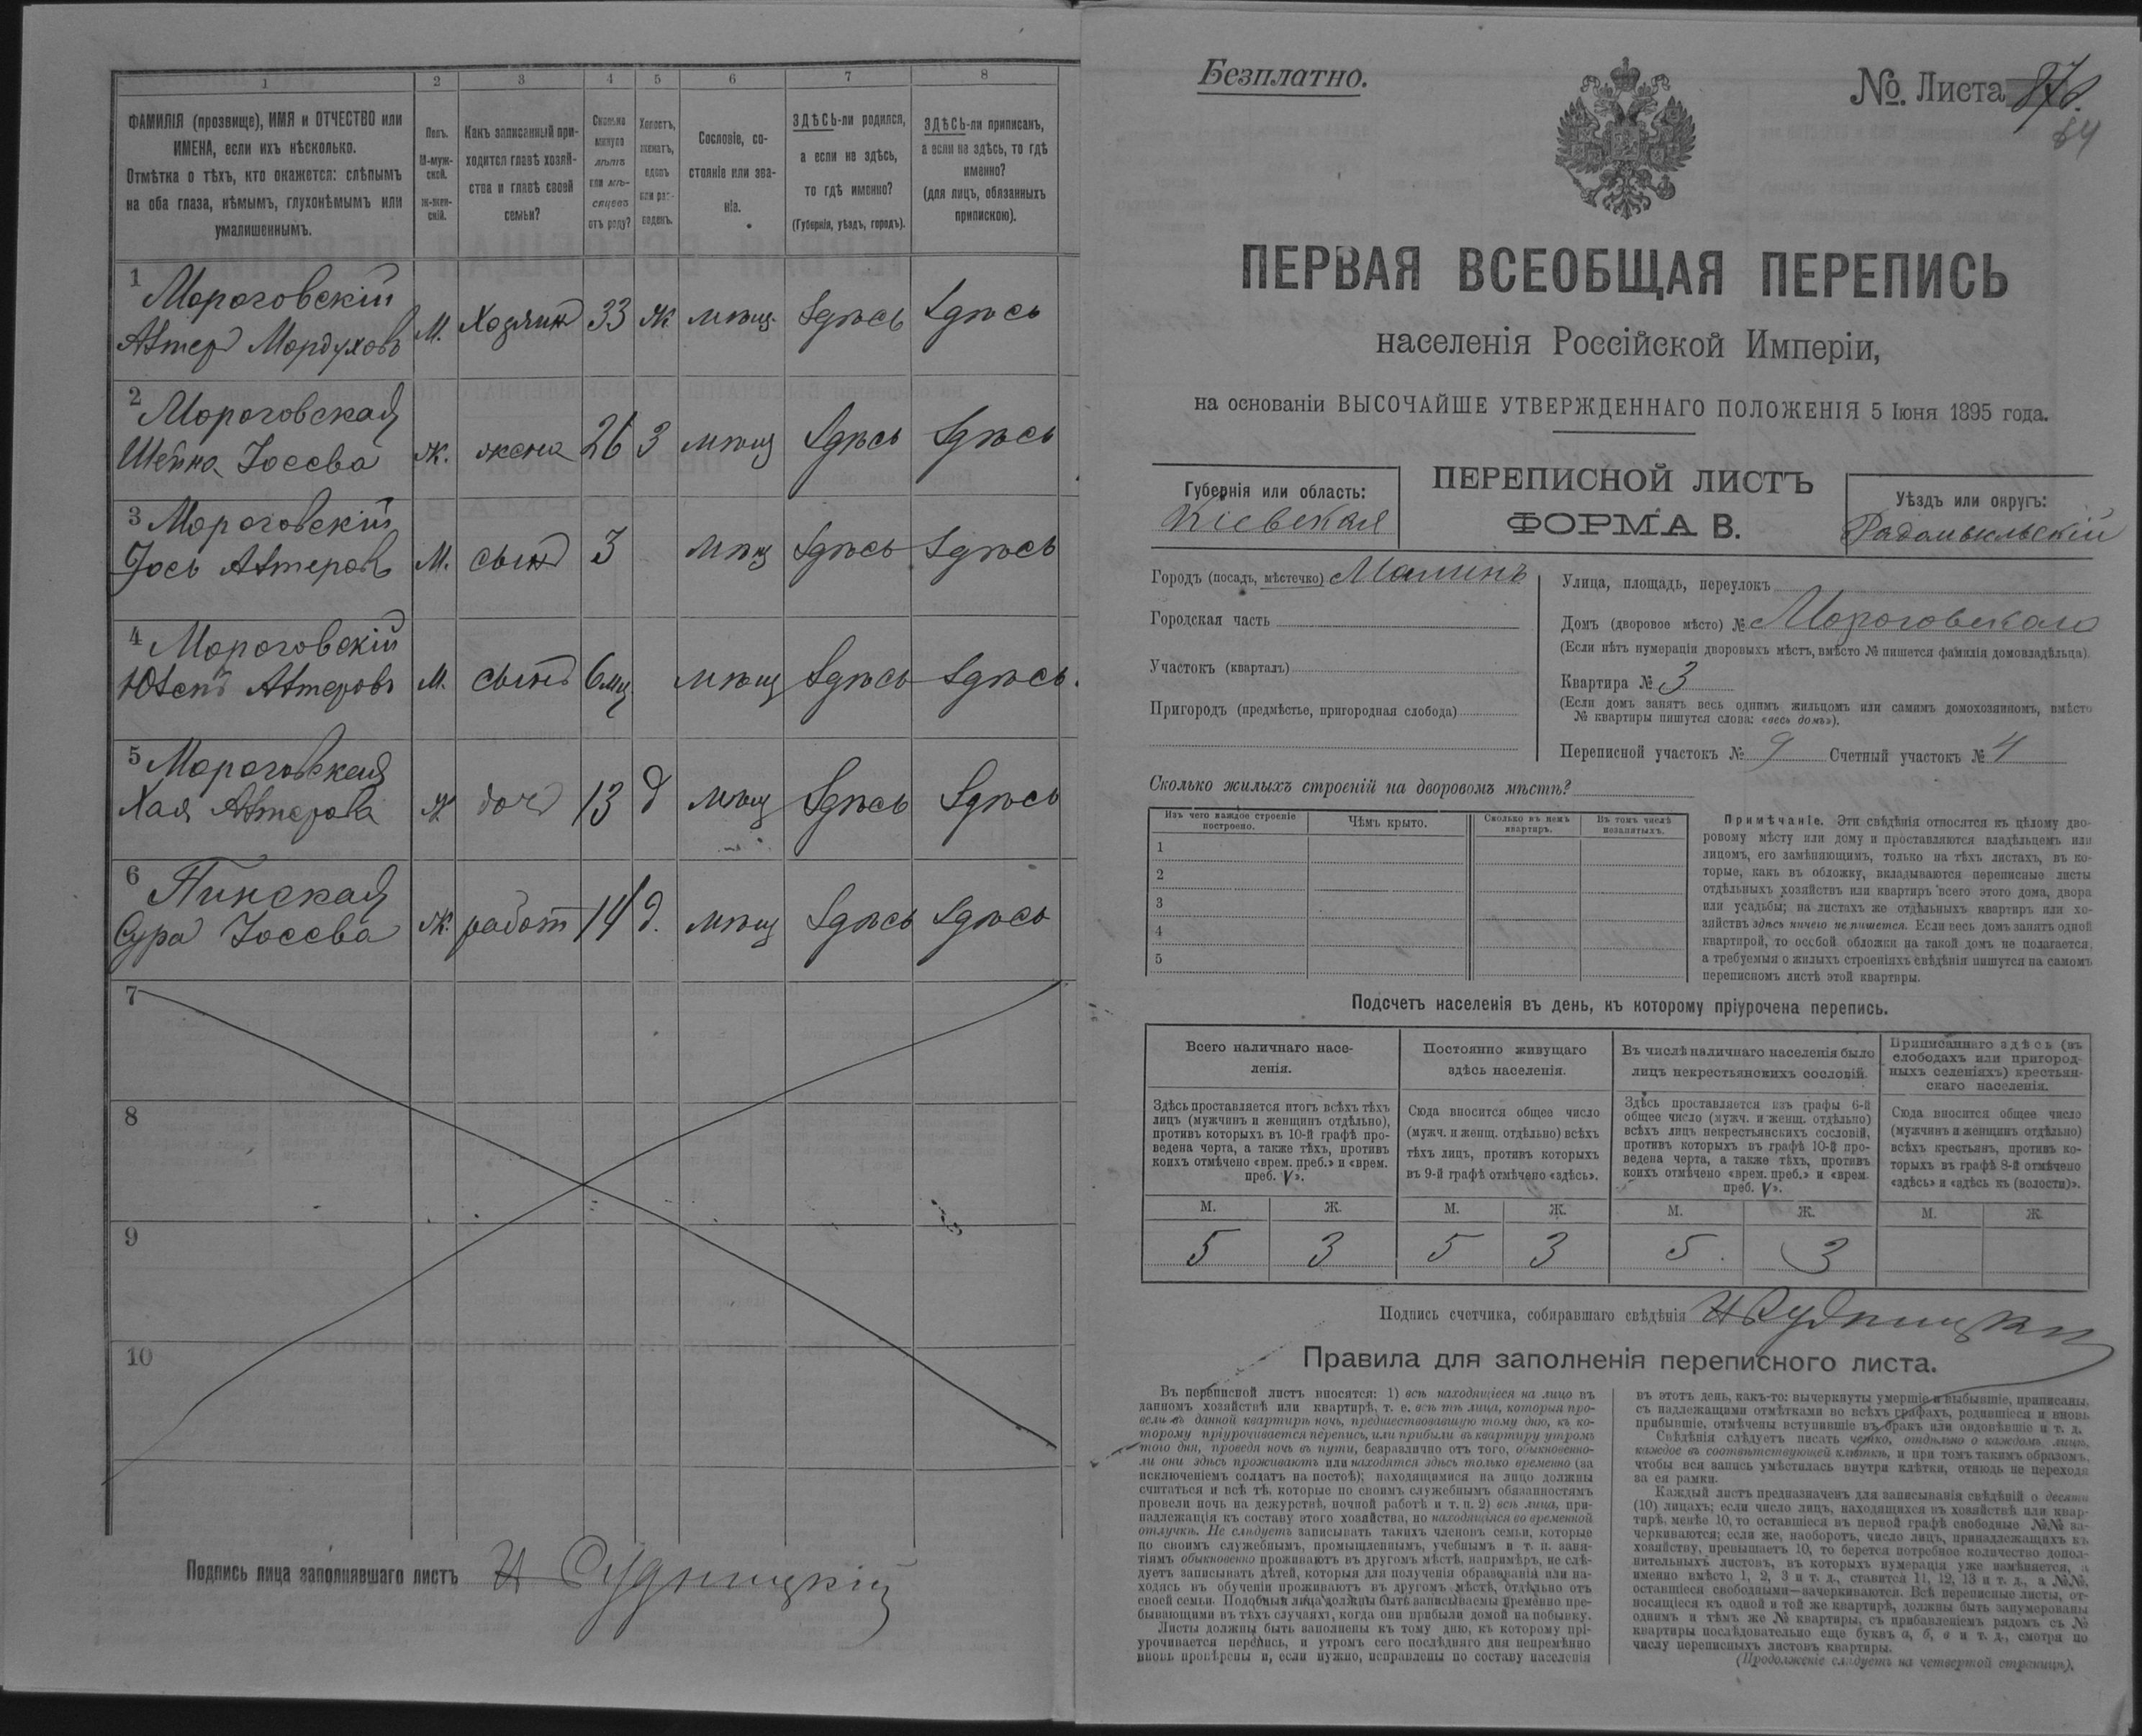 1 2 3 4 5 6 7 8
ФАМИЛІЯ (прозвище), ИМЯ и ОТЧЕСТВО или
ИМЕНА, если ихъ нѣсколько.
Отмѣтка о тѣхъ, кто окажется: слѣпымъ
на оба глаза, нѣмымъ, глухонѣмымъ или
умалишеннымъ.
Полъ.
М-муж-
ской.
Ж-жен-
скій.
Какъ записанный при-
ходится главѣ хозяй-
ства и главѣ своей
семьи?
Сколько
минуло
лѣтъ
или мѣ-
сяцевъ
отъ роду?
Холостъ,
женатъ,
вдовъ
или раз-
веденъ.
Сословіе, со-
стояніе или зва-
ніе.
ЗДѢСЬ-ли родился,
а если не здѣсь,
то гдѣ именно?
(Губернія, уѣздъ, городъ).
ЗДѢСЬ-ли приписанъ,
а если не здѣсь, то гдѣ
именно?
(для лицъ, обязанныхъ
припискою).
1 Мороговскій
Автер Мордуховъ М. Хозяинъ 33 Ж мѣщ. Здѣсь Здѣсь
2 Мороговская
Шейна Іосева Ж. жена 26 З мѣщ Здѣсь Здѣсь
3 Мороговскій
Іось Автеровъ М. сынъ 3 мѣщ Здѣсь Здѣсь
4 Мороговскій
Автеровъ М. сынъ 6 мц. мѣщ Здѣсь Здѣсь.
5 Мороговская
Хая Автерова Ж доч 13 д мѣщ Здѣсь Здѣсь
6 Пинская
Сура Іосева Ж. работ 14 д. мѣщ Здѣсь Здѣсь
7
8
9
10
Подпись лица заполнявшаго листъ И Рудницкій
Безплатно.
№. Листа
84
ПЕРВАЯ ВСЕОБЩАЯ ПЕРЕПИСЬ
населенія Россійской Имперіи,
на основаніи ВЫСОЧАЙШЕ УТВЕРЖДЕННАГО ПОЛОЖЕНІЯ 5 Іюня 1895 года.
Губернія или область:
Кіевская
ПЕРЕПИСНОЙ ЛИСТЪ
ФОРМА В.
Уѣздъ или округъ:
Радомысльскій
Городъ (посадъ, мѣстечко) Малинъ
Городская часть
Участокъ (кварталъ)
Пригородъ (предмѣстье, пригородная слобода)
Улица, площадь, переулокъ
Домъ (дворовое мѣсто) № Мороговскаго
(Если нѣтъ нумераціи дворовыхъ мѣстъ, вмѣсто № пишется фамилія домовладѣльца)
Квартира № 3
(Если домъ занятъ весь однимъ жильцомъ или самимъ домохозяиномъ, вмѣсто
№ квартиры пишутся слова: «весь домъ»).
Переписной участокъ № 9 Счетный участокъ № 4
Сколько жилыхъ строеній на дворовомъ мѣстѣ?
Изъ чего каждое строеніе
построено.
Чѣмъ крыто.
Сколько въ немъ
квартиръ.
Въ томъ числѣ
незанятыхъ.
1
2
3
4
5
Примѣчаніе. Эти свѣдѣнія относятся къ цѣлому дво-
ровому мѣсту или дому и проставляются владѣльцемъ или
лицомъ, его замѣняющимъ, только на тѣхъ листахъ, въ ко-
торые, какъ въ обложку, вкладываются переписные листы
отдѣльныхъ хозяйствъ или квартиръ всего этого дома, двора
или усадьбы; на листахъ же отдѣльныхъ квартиръ или хо-
зяйствъ здѣсь ничего не пишется. Если весь домъ занятъ одной
квартирой, то особой обложки на такой домъ не полагается,
а требуемыя о жилыхъ строеніяхъ свѣдѣнія пишутся на самомъ
переписномъ листѣ этой квартиры.
Подсчетъ населенія въ день, къ которому пріурочена перепись.
Всего наличнаго насе-
ленія.
Постоянно живущаго
здѣсь населенія.
Въ числѣ наличнаго населенія было
лицъ некрестьянскихъ сословій.
Приписаннаго здѣсь (въ
слободахъ или пригород-
ныхъ селеніяхъ) крестьян-
скаго населенія.
Здѣсь проставляется итогъ всѣхъ тѣхъ
лицъ (мужчинъ и женщинъ отдѣльно),
противъ которыхъ въ 10-й графѣ про-
ведена черта, а также тѣхъ, противъ
коихъ отмѣчено «врем. преб.» и «врем.
преб. V».
Сюда вносится общее число
(мужч. и женщ. отдѣльно) всѣхъ
тѣхъ лицъ, противъ которыхъ
въ 9-й графѣ отмѣчено «здѣсь».
Здѣсь проставляется изъ графы 6-й
общее число (мужч. и женщ. отдѣльно)
всѣхъ лицъ некрестьянскихъ сословій,
противъ которыхъ въ графѣ 10-й про-
ведена черта, а также тѣхъ, противъ
коихъ отмѣчено «врем. преб.» и «врем.
преб. V».
Сюда вносится общее число
(мужчинъ и женщинъ отдѣльно)
всѣхъ крестьянъ, противъ ко-
торыхъ въ графѣ 8-й отмѣчено
«здѣсь» и «здѣсь къ (волости)».
М. Ж. М. Ж. М. Ж. М. Ж.
5 3 5 3 5. 3
Подпись счетчика, собиравшаго свѣдѣнія И Рудницкій
Правила для заполненія переписного листа.
Въ переписной листъ вносятся: 1) всѣ находящіеся на лицо въ
данномъ хозяйствѣ или квартирѣ, т. е. всѣ тѣ лица, которыя про-
вели въ данной квартирѣ ночь, предшествовавшую тому дню, къ ко-
торому пріурочивается перепись, или прибыли въ квартиру утромъ
того дня, проведя ночь въ пути, безразлично отъ того, обыкновенно-
ли они здѣсь проживаютъ или находятся здѣсь только временно (за
исключеніемъ солдатъ на постоѣ); находящимися на лицо должны
считаться и всѣ тѣ, которые по своимъ служебнымъ обязанностямъ
провели ночь на дежурствѣ, ночной работѣ и т. п. 2) всѣ лица, при-
надлежащія къ составу этого хозяйства, но находящіяся во временной
отлучкѣ. Не слѣдуетъ записывать такихъ членовъ семьи, которые
по своимъ служебнымъ, промышленнымъ, учебнымъ и т. п. заня-
тіямъ обыкновенно проживаютъ въ другомъ мѣстѣ, напримѣръ, не слѣ-
дуетъ записывать дѣтей, которыя для полученія образованія или на-
ходясь въ обученіи проживаютъ въ другомъ мѣстѣ, отдѣльно отъ
своей семьи. Подобныя лица должны быть записываемы временно пре-
бывающими въ тѣхъ случаяхъ, когда они прибыли домой на побывку.
Листы должны быть заполнены къ тому дню, къ которому прі-
урочивается перепись, и утромъ сего послѣдняго дня непремѣнно
вновь провѣрены и, если нужно, исправлены по составу населенія
въ этотъ день, какъ-то: вычеркнуты умершіе и выбывшіе, приписаны,
съ надлежащими отмѣтками во всѣхъ графахъ, родившіеся и вновь
прибывшіе, отмѣчены вступившіе въ бракъ или овдовѣвшіе и т. д.
Свѣдѣнія слѣдуетъ писать четко, отдѣльно о каждомъ лицѣ,
каждое въ соотвѣтствующей клѣткѣ, и при томъ такимъ образомъ,
чтобы вся запись умѣстилась внутри клѣтки, отнюдь не переходя
за ея рамки.
Каждый листъ предназначенъ для записыванія свѣдѣній о десяти
(10) лицахъ; если число лицъ, находящихся въ хозяйствѣ или квар-
тирѣ, менѣе 10, то оставшіеся въ первой графѣ свободные №№ за-
черкиваются; если же, наоборотъ, число лицъ, принадлежащихъ къ
хозяйству, превышаетъ 10, то берется потребное количество допол-
нительныхъ листовъ, въ которыхъ нумерація уже измѣняется, а
именно вмѣсто 1, 2, 3 и т. д., ставится 11, 12, 13 и т. д., а №№,
оставшіеся свободными—зачеркиваются. Всѣ переписные листы, от-
носящіеся къ одной и той же квартирѣ, должны быть занумерованы
однимъ и тѣмъ же № квартиры, съ прибавленіемъ рядомъ съ №
квартиры послѣдовательно еще буквъ а, б, в и т. д., смотря по
числу переписныхъ листовъ квартиры.
(Продолженіе слѣдуетъ на четвертой страницѣ).